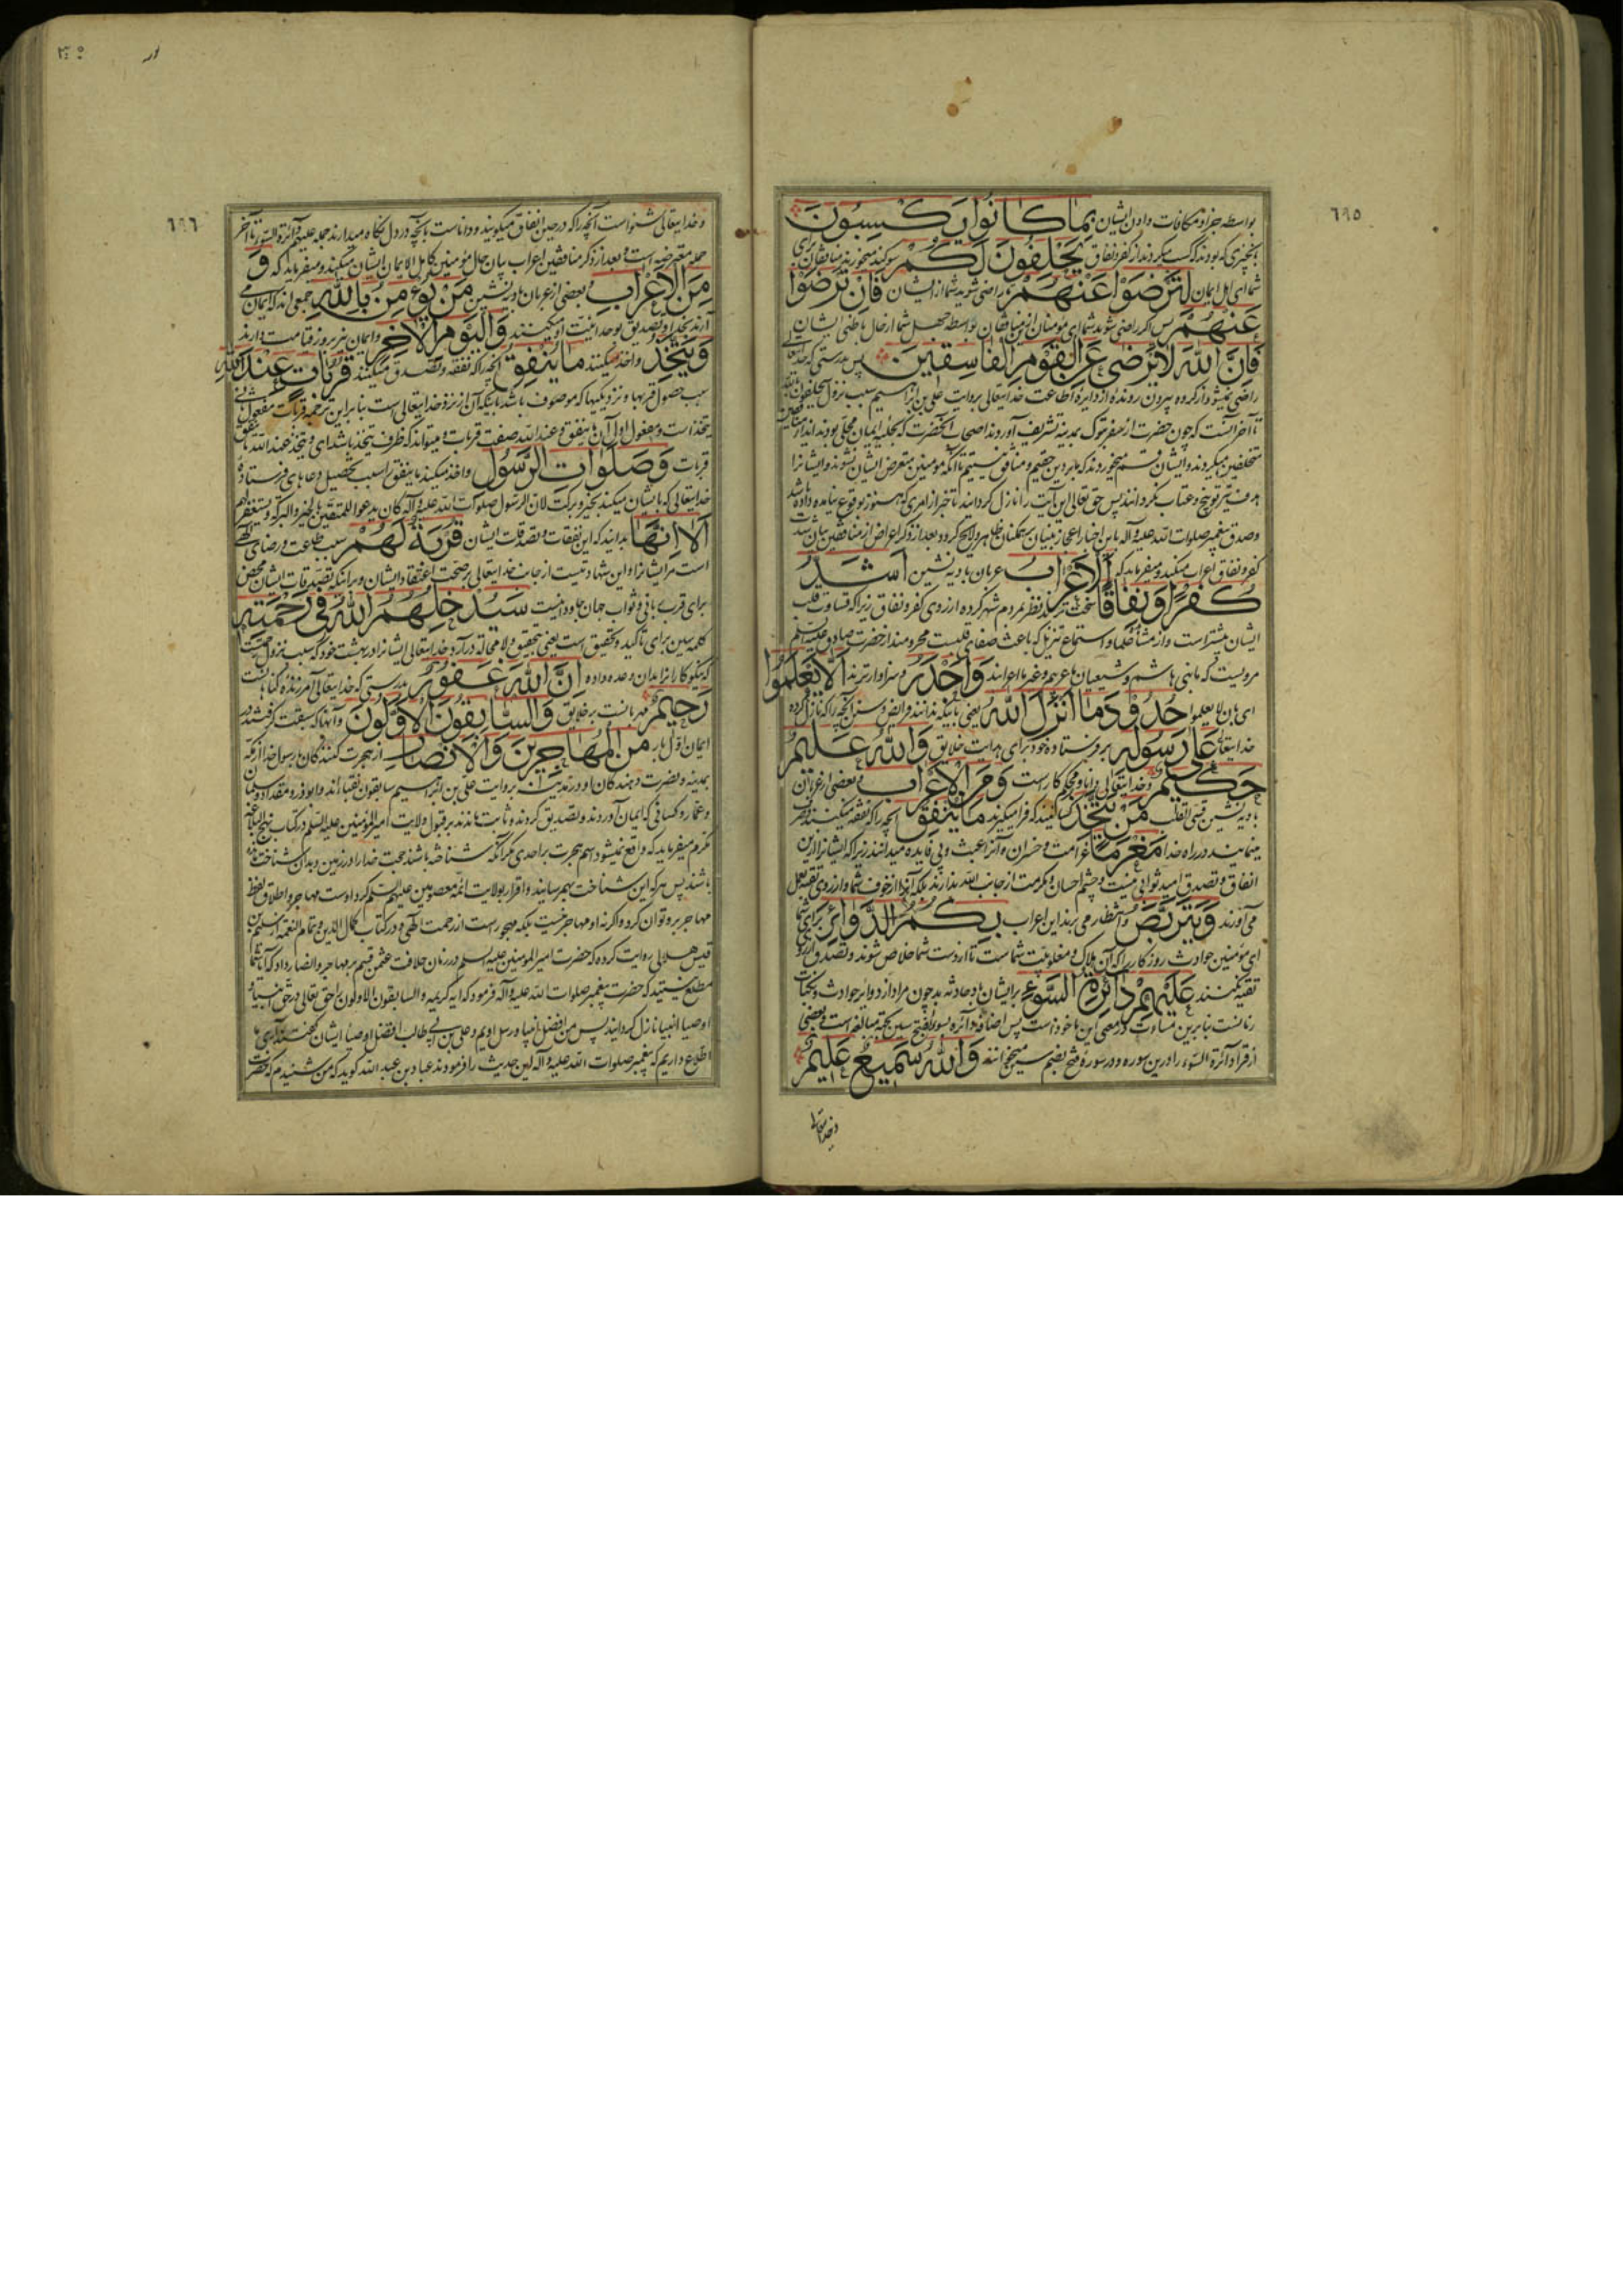 ٦٩٥
بواسطه جزا و مکافات دادن ایشان بِمَا كَانُوا يَكْسِبُونَ
بچیزی که بودند که کسب میکردند از کفر و نفاق يَحْلِفُونَ لَكُمْ سوگند میخورند منافقان برای
شما ای اهل ایمان لِتَرْضَوْا عَنْهُمْ تا راضی شوید شما از ایشان فَإِنْ تَرْضَوْا
عَنْهُمْ پس اگر راضی شوید شما ای مومنان از منافقان بواسطه جهل شما از حال باطنی ایشان
فَإِنَّ اللهَ لَا يَرْضَى عَنِ الْقَوْمِ الْفَاسِقِينَ پس بدرستی که خدایتعالی
راضی نمیشود از گروه بیرون رونده از دایره اطاعت خدایتعالی بروایت علی بن ابراهیم سبب نزول
تا آخر آنست که چون حضرت از سفر تبوک بمدینه تشریف آوردند اصحاب آنحضرت که بحلیه ایمان محلی بودند
متخلفین میکردند و ایشان قسم میخوردند که ما بر دین حقیم و منافق نیستیم تا آنکه مومنین متعرض ایشان نشوند و ایشانرا
هدف تیر توبیخ و عتاب نگردانند پس حق تعالی این آیت را نازل گردانید تا خبر از امری که هنوز بوقوع نیامده داده باشد
وصدق پیغمبر صلوات الله علیه و آله باین اخبار اعجاز بنیان بر همکنان ظاهر و لایح گردد و بعد از ذکر اعراض از منافقین بیان شدت
کفر و نفاق اعراب میکند و میفرماید که الْأَعْرَابُ عربان بادیه نشین أَشَدُّ
كُفْرًا وَنِفَاقًا سخت ترند نظر بمردم شهر کرده از روی کفر و نفاق زیرا که قساوت قلب
ایشان بیشتر است و از مشاهده علما و استماع تنزیل که باعث صفای قلبست محرومند از حضرت صادق علیه السلم
مرویست که ما بنی هاشم و شیعیان ما عربیم و غیر ما اعرابند وَأَجْدَرُ و سزاوارترند أَلَّا يَعْلَمُوا
ای بان لا یعلموا حُدُودَ مَا أَنْزَلَ اللهُ یعنی باینکه ندانند فرایض و سنن آنچه را که نازل کرده
خدایتعالی عَلَى رَسُولِهِ بر فرستاده خود برای هدایت خلایق وَاللهُ عَلِيمٌ
حَكِيمٌ و خدایتعالی دانا و محکم کار است وَمِنَ الْأَعْرَابِ و بعضی از عربان
بادیه نشین قسی القلب مَنْ يَتَّخِذُ کسانیند که فرا میگیرند مَا يُنْفِقُ آنچه را که نفقه میکنند
مینمایند در راه خدا مَغْرَمًا غرامت و خسران و آنرا عبث و بی فایده میدانند زیرا که ایشانرا از این
انفاق و تصدق امید ثوابی نیست و چشم احسان و مکرمت از جانب الله ندارند بلکه آنرا از خوف شما و از روی تقیه بعمل
می آورند وَيَتَرَبَّصُ و انتظار می برند این اعراب بِكُمُ الدَّوَائِرَ برای شما
ای مؤمنین حوادث روزگار را که آن هلاک و مغلوبیت شماست تا از دست شما خلاص شوند و تصدق از روی
تقیه نکنند عَلَيْهِمْ دَائِرَةُ السَّوْءِ بر ایشان باد حادثه بد چون مراد از دوایر حوادث و نکبات
زمانست بنابرین مساوت در معنی این ماخوذ است پس اضافه دائره بسوء بفتح سین بجهة مبالغه است و بعضی
از قراء دائرة السوء را درین سوره و در سوره فتح بضم سین خوانند وَاللهُ سَمِيعٌ عَلِيمٌ
و خدایتعالی
٦٩٦
و خدایتعالی شنواست آنچه را که در حین انفاق میگویند و داناست بآنچه در دل نگاه میدارند جمله علیهم دائرة السوء تا آخر
جمله معترضه است و بعد از ذکر منافقین اعراب بیان حال مؤمنین کامل الایمان ایشان میکند و میفرماید که وَ
مِنَ الْأَعْرَابِ و بعضی از عربان بادیه نشین مَنْ يُؤْمِنُ بِاللهِ جمعی اند که ایمان می
آرند بخدا و تصدیق بوحدانیت او میکنند وَالْيَوْمِ الْآخِرِ و ایمان نیز بروز قیامت دارند
وَيَتَّخِذُ و اخذ میکنند مَا يُنْفِقُ آنچه را که نفقه و تصدق میکنند قُرُبَاتٍ عِنْدَ اللهِ
سبب حصول قربها و نزدیکیها که موصوف باشد باینکه آن از نزد خدایتعالی است بنابراین ترجمه قربات مفعول ثانی
یتخذ است و مفعول اول آن ما ینفق و عند الله صفت قربات و میتواند که ظرف یتخذ باشد ای و یتخذ عند الله ما ینفق
قربات وَصَلَوَاتِ الرَّسُولِ و اخذ میکنند ما ینفق را سبب تحصیل دعاهای فرستاده
خدایتعالی که بایشان میکند بخیر و برکت لان الرسول صلوات الله علیه و آله کان یدعوا للمتصدقین بالخیر و البرکة و یستغفر لهم
أَلَا إِنَّهَا بدانید که این نفقات و تصدقات ایشان قُرْبَةٌ لَهُمْ سبب طاعت و رضای الهی
است مر ایشانرا و این شهادتیست از جانب خدایتعالی بر صحت اعتقاد ایشان و بر آنکه تصدقات ایشان محض
برای قرب باقی و ثواب جهان جاودانیست سَيُدْخِلُهُمُ اللهُ فِي رَحْمَتِهِ
کلمه سین برای تاکید و تحقیق است یعنی بتحقیق و لا محاله درآرد خدایتعالی ایشانرا در بهشت خود که سبب نزول رحمتست
که نیکوکارانرا بدان وعده داده إِنَّ اللهَ غَفُورٌ بدرستی که خدایتعالی آمرزنده گناهانست
رَحِيمٌ مهربانست بر خلایق وَالسَّابِقُونَ الْأَوَّلُونَ و آنها که سبقت گرفتند در
ایمان اول بار مِنَ الْمُهَاجِرِينَ وَالْأَنْصَارِ از هجرت کنندگان با رسول خدا از مکه
بمدینه و نصرت دهندگان او در مدینه بروایت علی بن ابراهیم سابقون نقبااند و ابوذر و مقداد و سلمان
و عمار و کسانی که ایمان آوردند و تصدیق کردند و ثابت ماندند بر قبول ولایت امیرالمؤمنین علیه السلم در کتاب نهج البلاغه
مکرم میفرماید که واقع نمیشود اسم هجرت بر احدی مگر آنکه شناخته باشد حجت خدا را در زمین و بدان شناخت
باشند پس هر که این شناخت بهم رسانید و اقرار بولایت ائمه معصومین علیهم السلم کرد اوست مهاجر و اطلاق لفظ
مهاجر برو توان کرد و اگر نه او مهاجر نیست بلکه مهجور است از رحمت الهی و در کتاب کمال الدین و تمام النعمه از سلیم بن
قیس هلالی روایت کرده که حضرت امیرالمؤمنین علیه السلم در زمان خلافت عثمن قسم بر مهاجر و انصار داد که آیا شما
مطلع نیستید که حضرت پیغمبر صلوات الله علیه و آله فرمود که آیه کریمه و السابقون الاولون را حق تعالی در حق انبیا و
اوصیا انبیا نازل گردانید پس من افضل انبیا و رسل اویم و علی بن ابی طالب افضل اوصیا ایشان گفتند آری ما
اطلاع داریم که پیغمبر صلوات الله علیه و آله این حدیث را فرمودند عباد بن عبد الله گوید که من شنیدم که حضرت